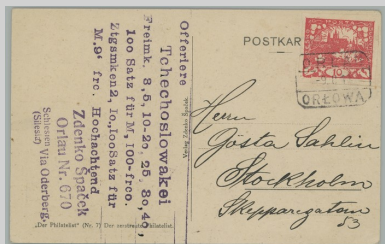 Offeriere
Tchechoslowakei
Freimk. 3,5,10-20,25,30,40,
100 Satz für M, 100-frco.
Ztgsmken2, 10,,100Satz für
M,9' frc. Hochachtend
Zdenko Špaček
Orlau Nr. 670
Schlesien Via Oderberg.
(Silesie)
Verlag Zdenko Špaček
„Der Philatelist" (Nr. 7) Der zerstreute Philatelist.
POSTKAR
ORŁOWA
Herrn
Gösta Sahlin
Stockholm
Skepparegatan
53